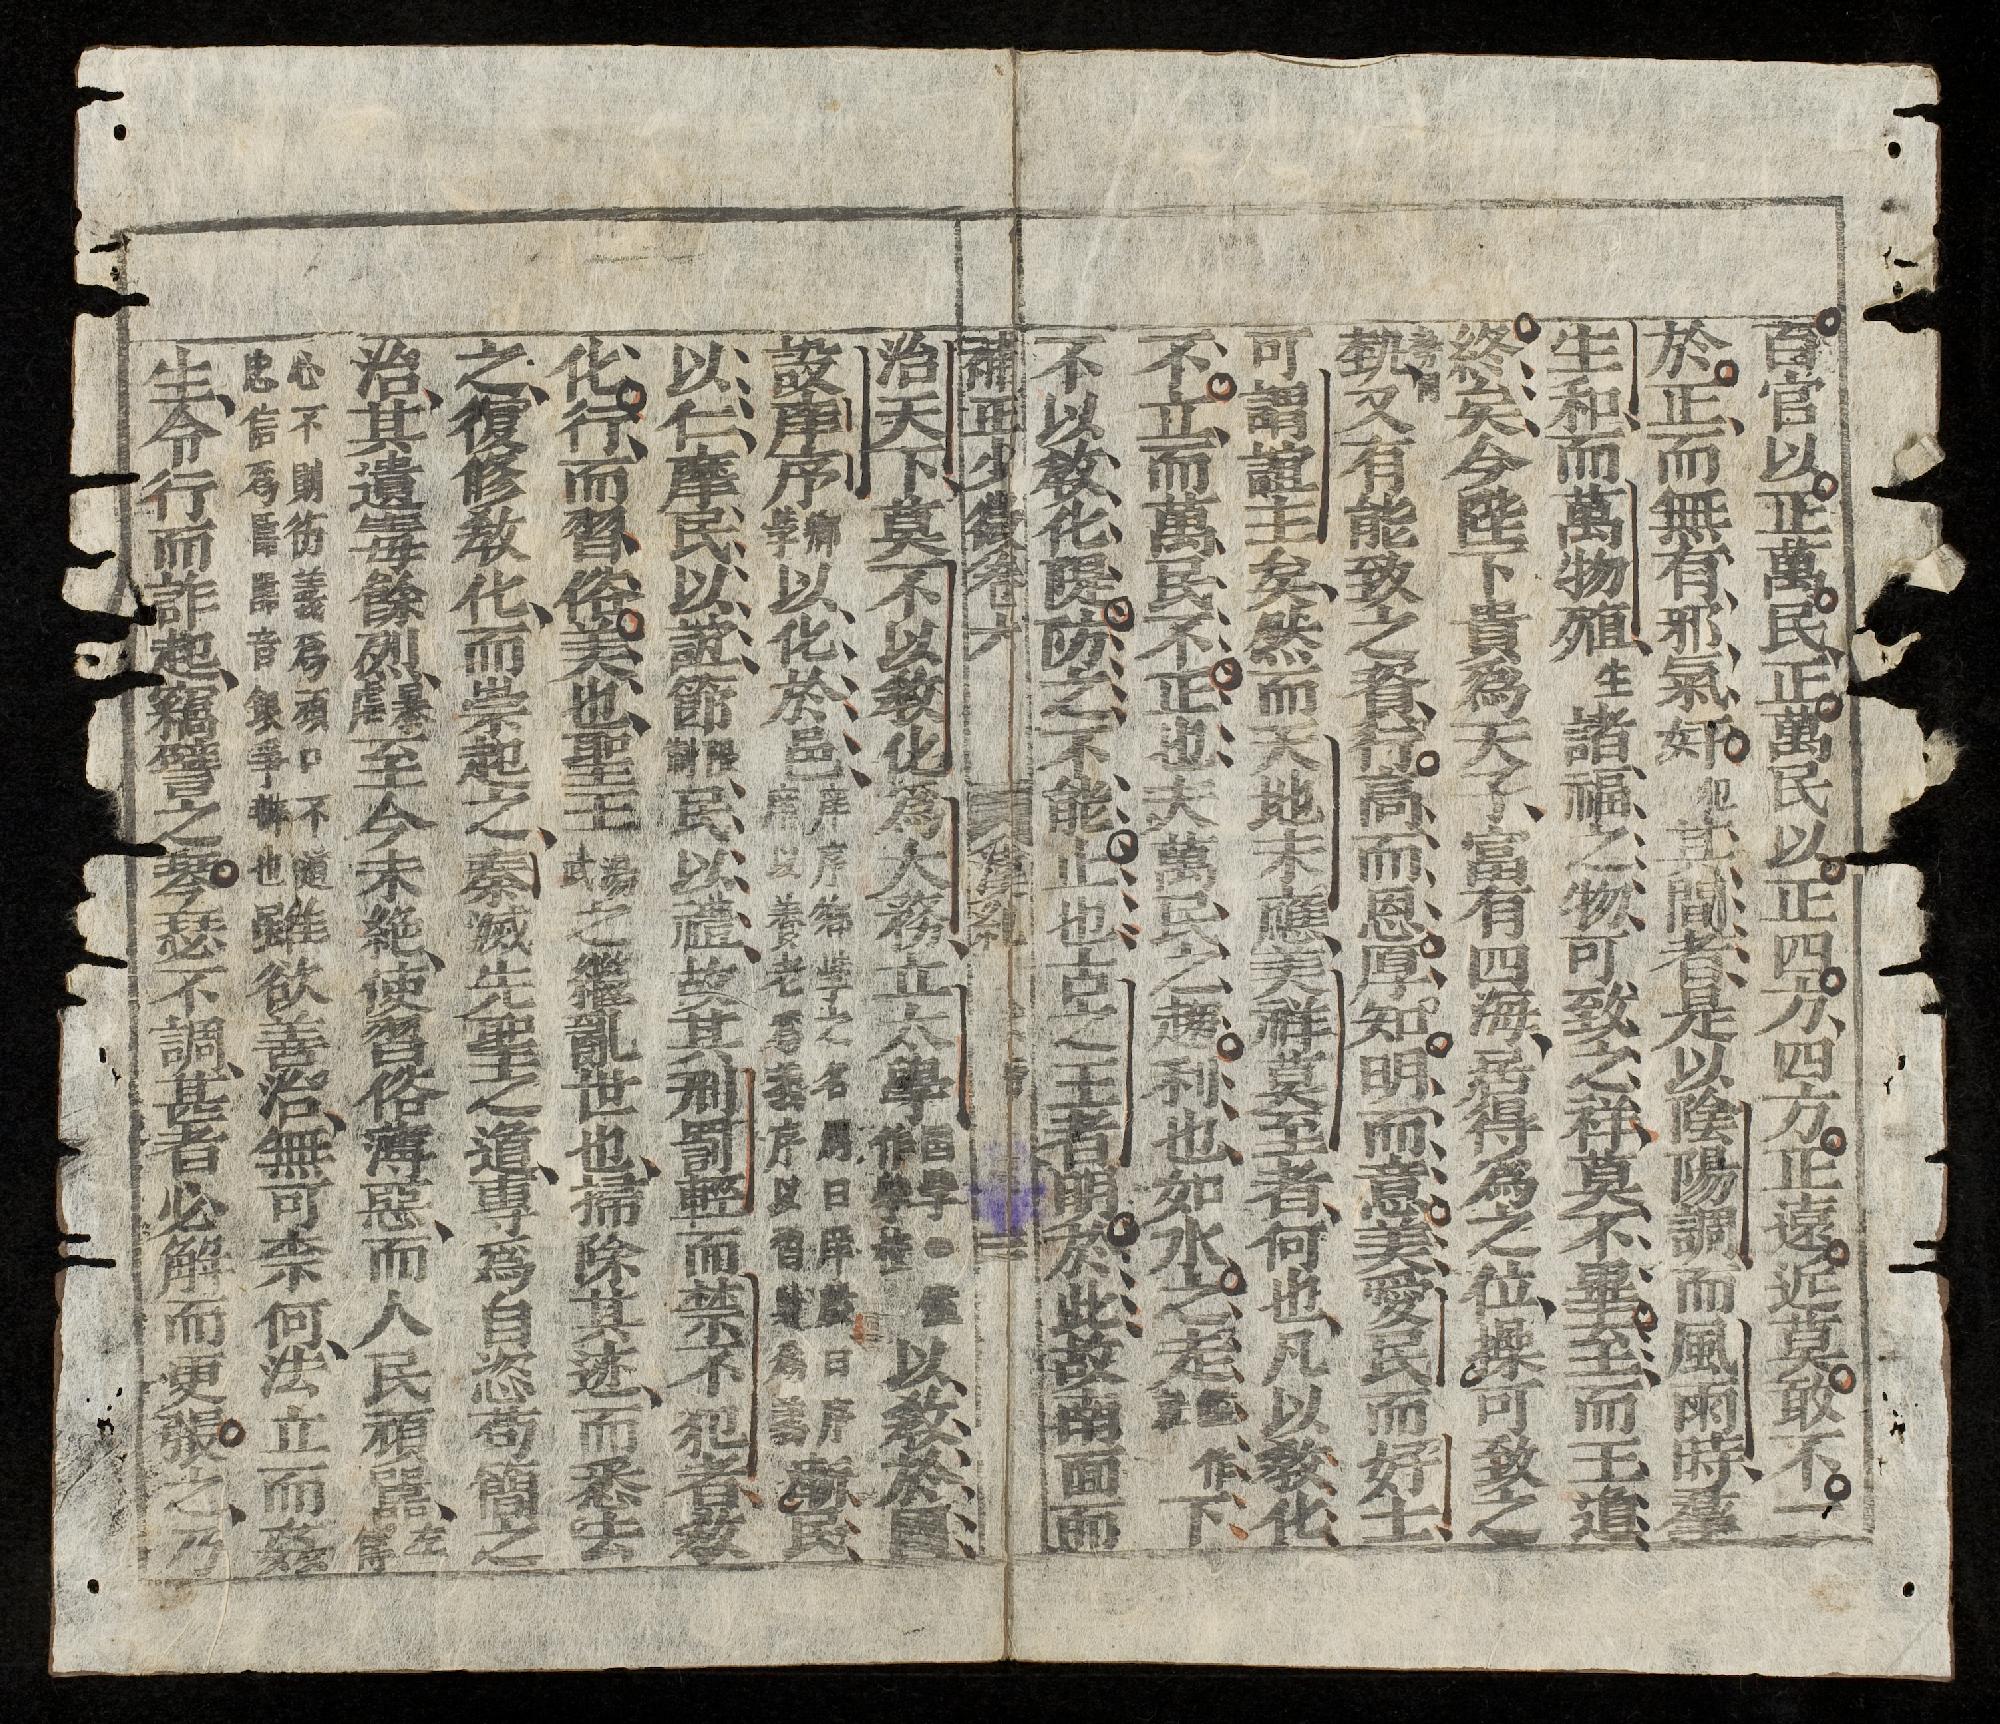 百官以正萬民正萬民以正四方四方正遠近莫敢不一
於正而無有邪氣奸犯其間者是以陰陽調而風雨時羣
生和而萬物殖生諸福之物可致之祥莫不畢至而王道
終矣今陛下貴爲天子富有四海居得爲之位操可致之
埶又有能致之資行高而恩厚知明而意美愛民而好士
可謂誼主矣然而天地未應美祥莫至者何也凡以敎化
不立而萬民不正也夫萬民之趨利也如水之走下
不以敎化隄防之不能止也古之王者明於此故南面而
補正少微卷六 漢紀
治天下莫不以敎化爲大務立太學以敎於國
設庠序以化於邑庠序鄕學之名周曰庠殷曰序庠以養老爲義序以習射爲義漸民
以仁摩民以誼節民以禮故其刑罰輕而禁不犯者敎
化行而習俗美也聖王湯武之繼亂世也掃除其迹而悉去
之復修敎化而崇起之秦滅先聖之道專爲自恣苟簡之
治其遺毒餘烈暴虐至今未絶使習俗薄惡而人民頑嚚左傳
心不則德義爲頑口不道忠信爲嚚嚚音銀爭訟也雖欲善治無可柰何法立而姦
生令行而詐起竊譬之琴瑟不調甚者必解而更張之乃